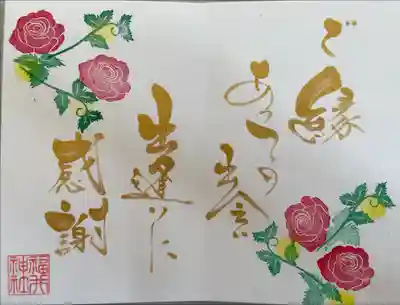 ご縁
あっての
出会い
出逢いに
感謝
神社